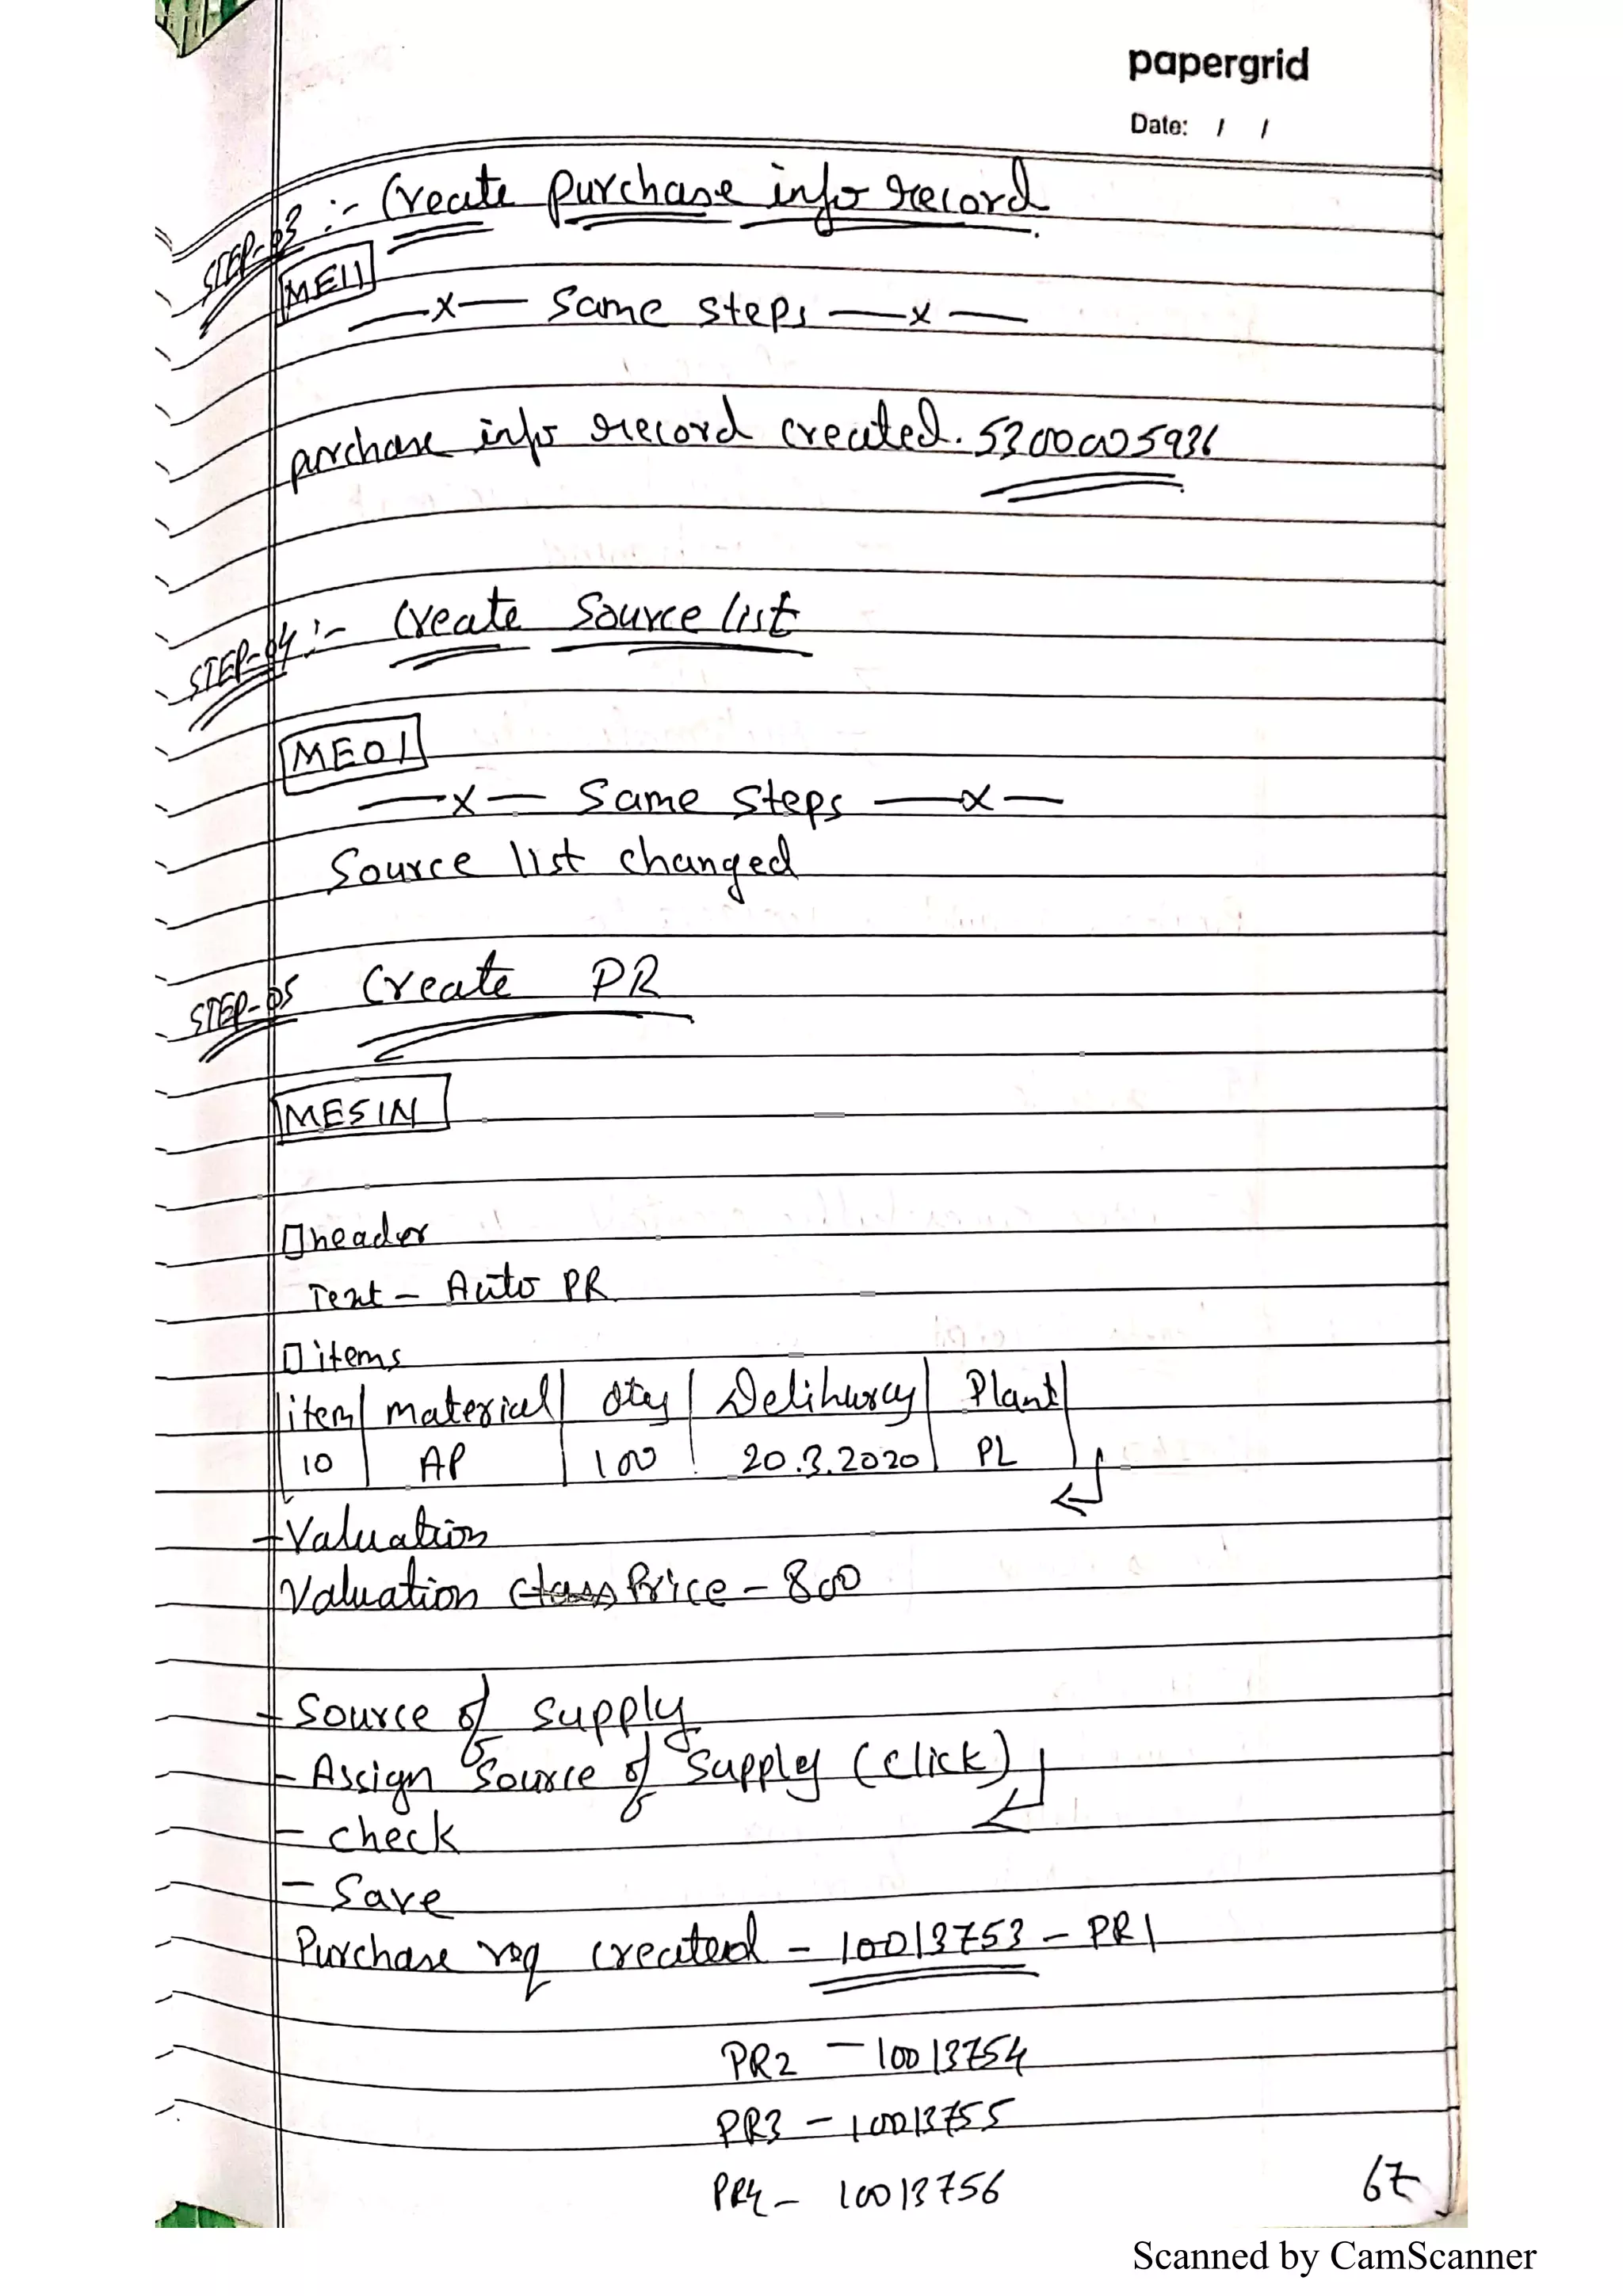 papergrid
Date: / /
STEP-03 :- Create purchase info record.
ME11
—x— Same steps —x—
purchase info record created. 5300005936
STEP-04 :- Create Source list
ME01
—x— Same steps —x—
Source list changed
STEP-05 Create PR
ME51N
header
Text - Auto PR
items
item | material | Qty | Delihurcy | Plant
10 | AP | 100 | 20.3.2020 | PL
- Valuation
Valuation Class Price - 800
- Source of supply
- Assign Source of Supply (click)
- check
- Save
Purchase req created - 10013753 - PR1
PR2 - 10013754
PR3 - 10013755
PR4 - 10013756
67
Scanned by CamScanner